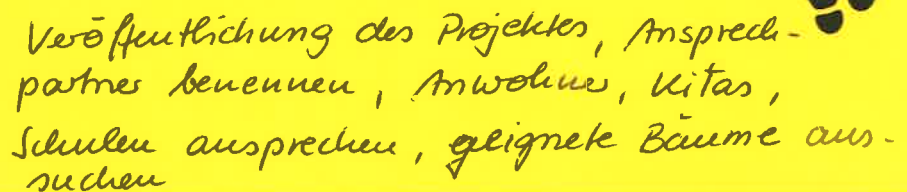 Veröffentlichung des Projektes, Ansprech-
partner benennen, Anwohner, Kitas,
Schulen ansprechen, geignete Bäume aus-
suchen